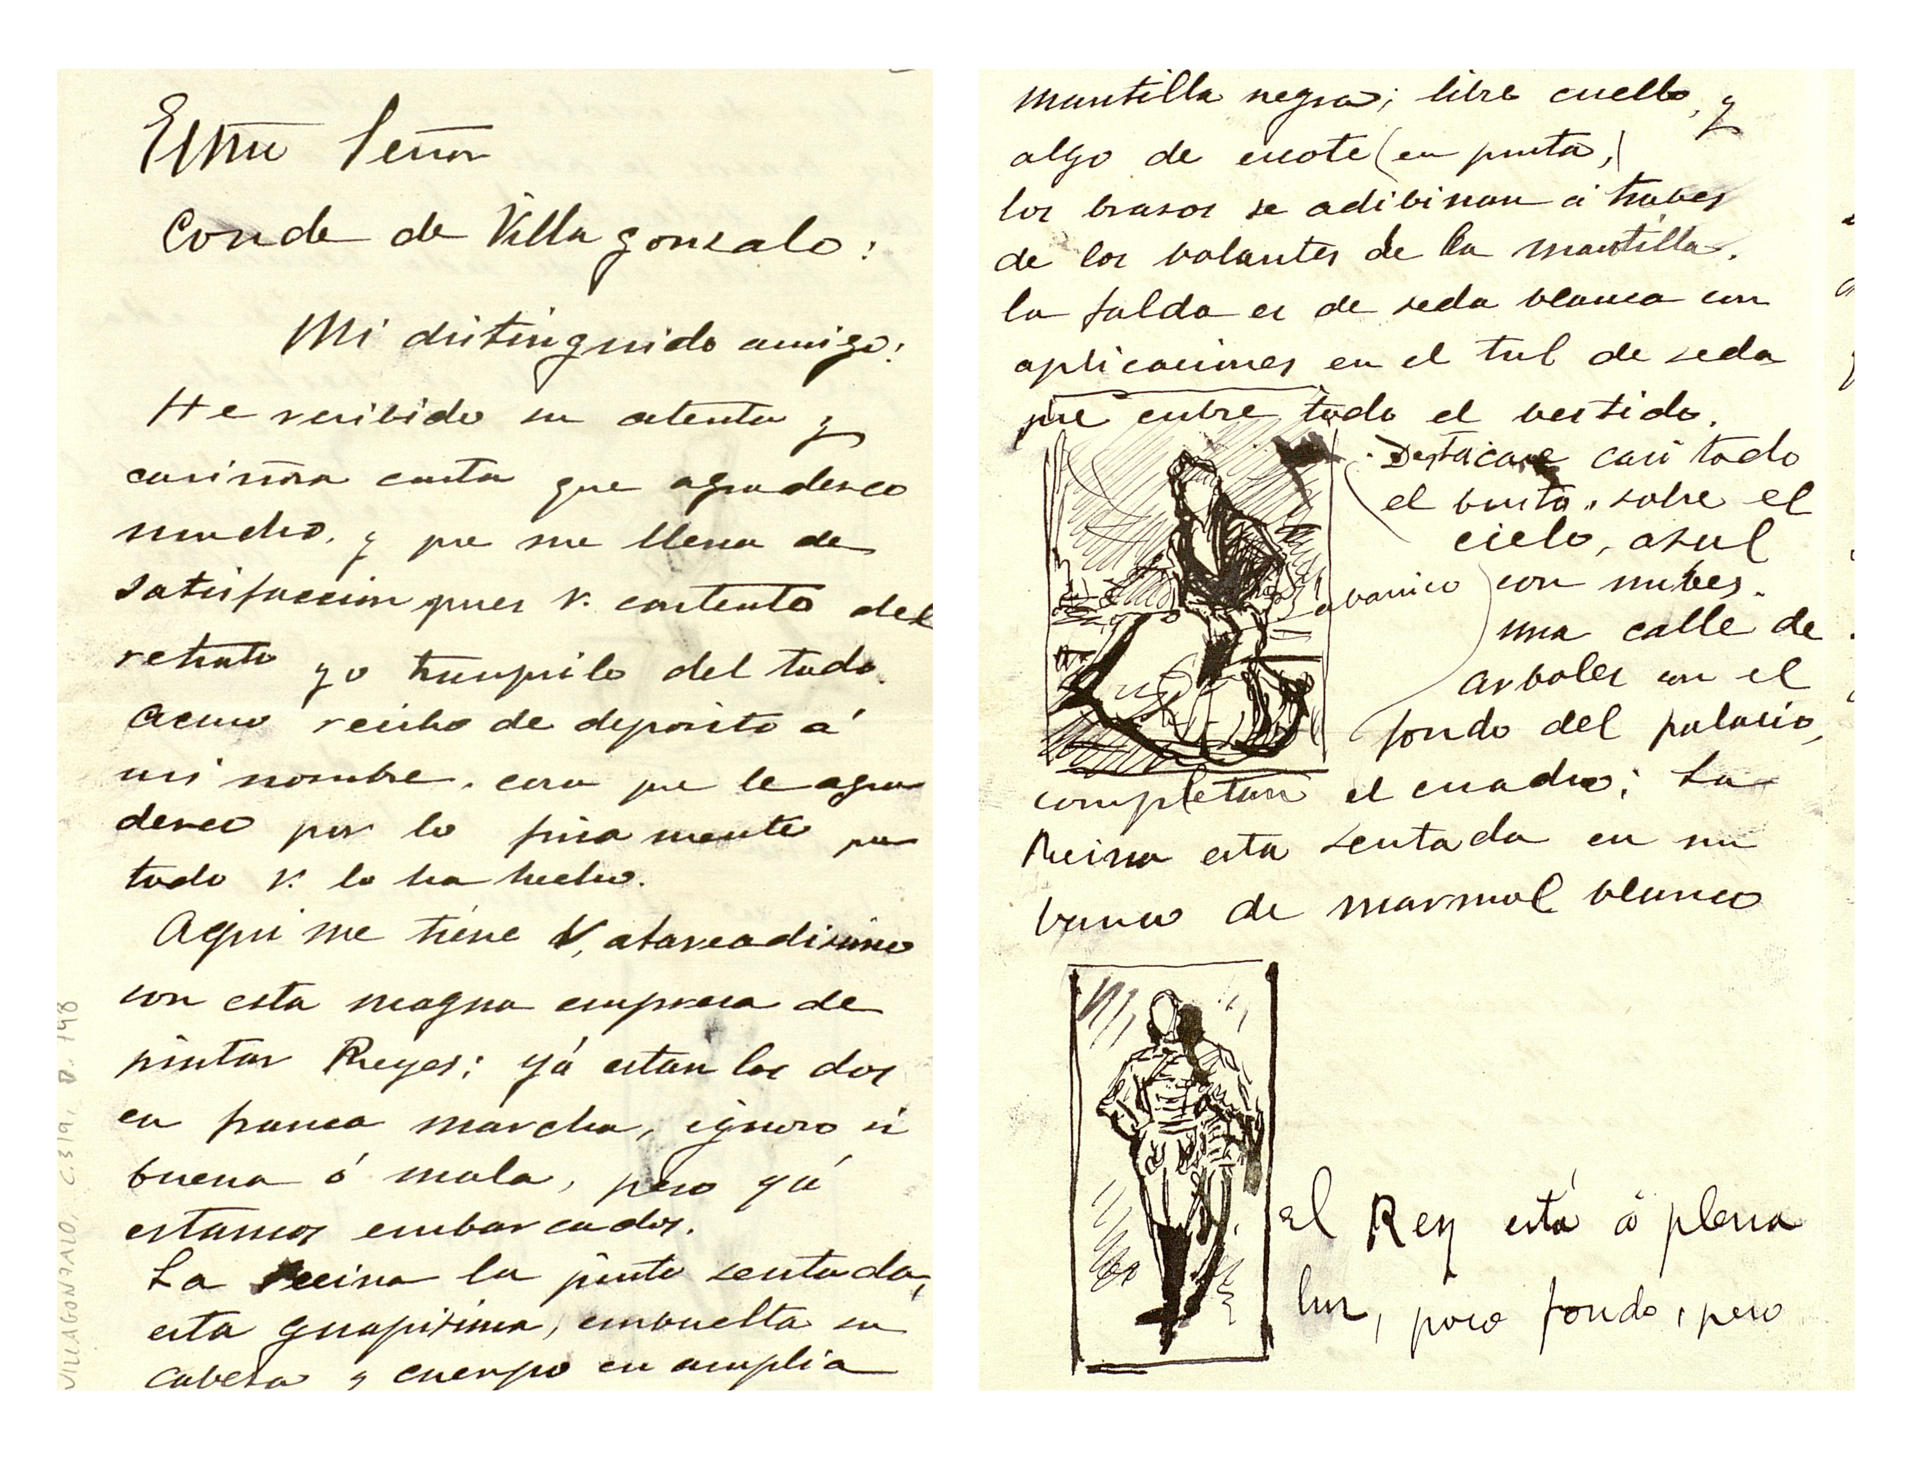 Exmo Señor
Conde de Villagonzalo:
Mi distinguido amigo:
He recibido su atenta y
cariñosa carta que agradesco
mucho, y que me llena de
satisfaccion pues V. contento del
retrato yo tranquilo del todo.
Acuso recibo de deposito á
mi nombre, cosa que le agra
desco por lo finamente que
todo V. lo ha hecho.
Aqui me tiene V, atareadisimo
con esta magna empresa de
pintar Reyes; yá estan los dos
en franca marcha, ignoro si
buena ó mala, pero yá
estamos embarcados.
La Reina la pinto sentada,
esta guapisima, embuelta su
cabesa y cuerpo en amplia
VILLAGONZALO, C. 319, D. 148
mantilla negra; libre cuello, y
algo de escote (en punta,)
los brasos se adibinan á trabes
de los volantes de la mantilla.
la falda es de seda blanca con
aplicaciones en el tul de seda
que cubre todo el vestido.
Destácase casi todo
el busto, sobre el
cielo, asul
abanico
con nubes.
una calle de
arboles con el
fondo del palacio,
completan el cuadro; La
Reina esta sentada en un
banco de marmol blanco
El Rey está á plena
lus, poco fondo, pero